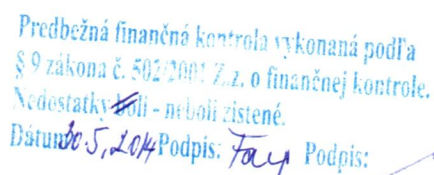 Predbežná finančná kontrola vykonaná podľa
§ 9 zákona č. 502/2001 Z.z. o finančnej kontrole.
Nedostatky boli - neboli zistené.
Dátum: 30.5.2014 Podpis: Podpis: